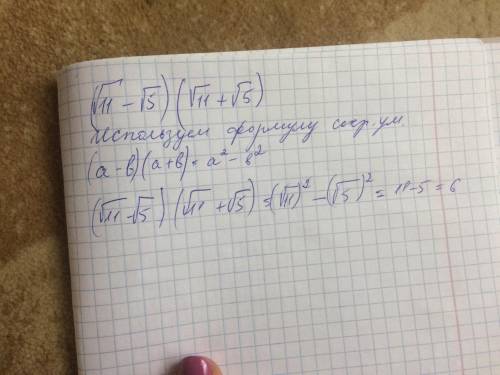 (√11 - √5) (√11 + √5)
Используем формулу сокр. ум.
(а-в)(а+в) = а² - в²
(√11 - √5) (√11 + √5) = (√11)² - (√5)² = 11-5 = 6